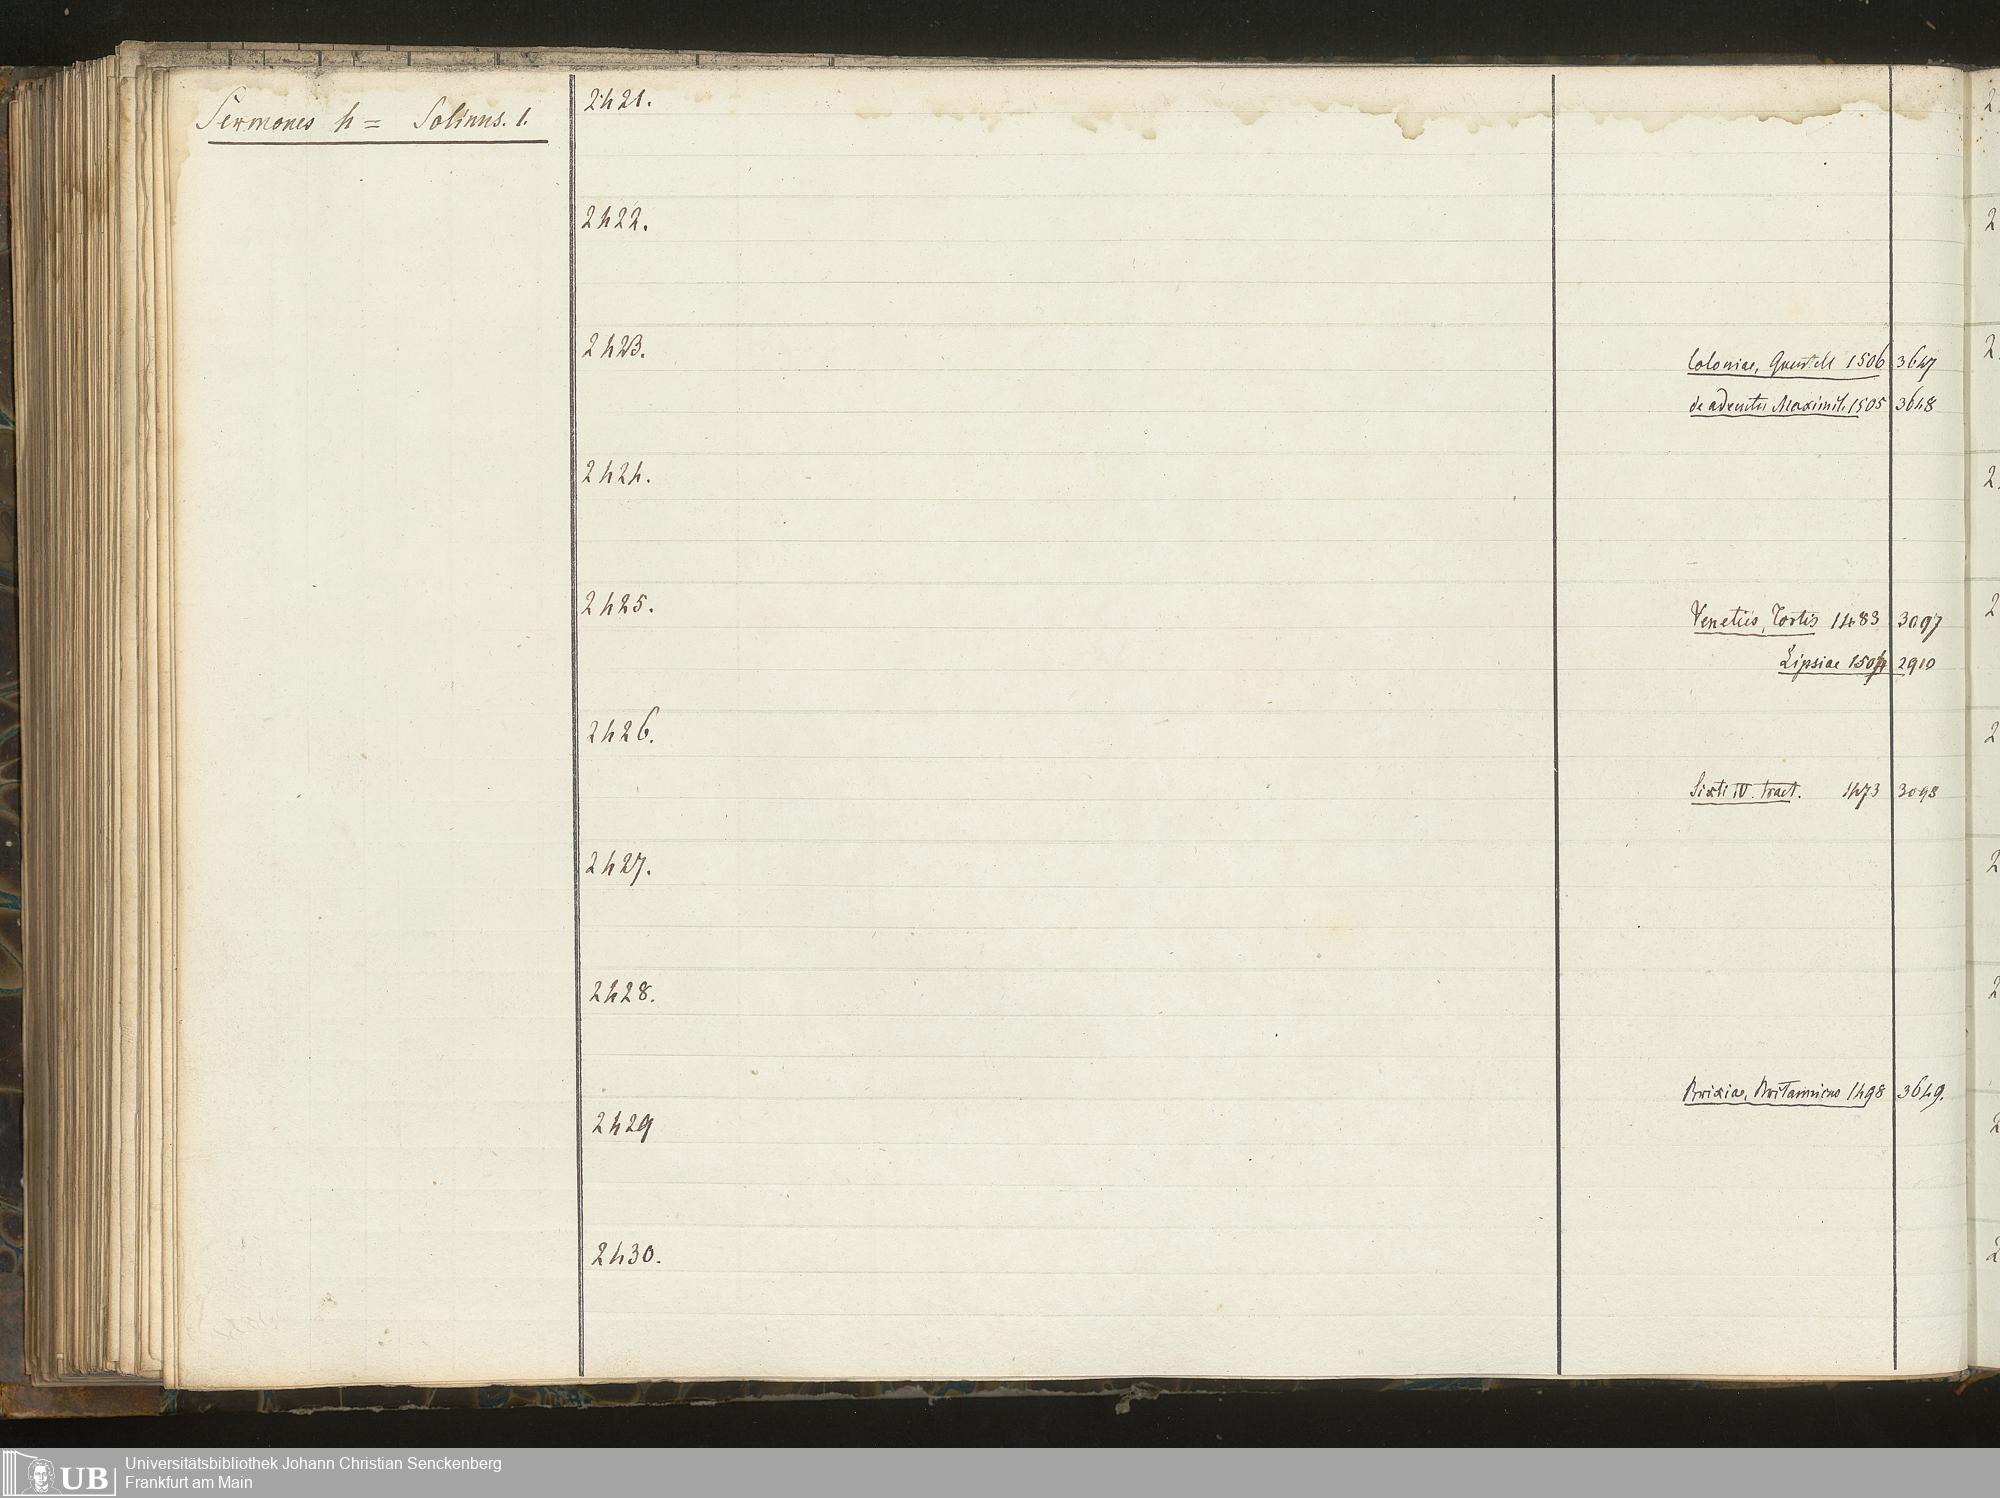 Sermones 4 = Solinus. 1.
2421.
2422.
2423.
Coloniae, Quentell 1506 3647
de adventu Maximil. 1505 3648
2424.
2425.
Venetiis, Tortis 1483 3097
Lipsiae 2910
2426.
Sixti IV. tract. 1473 3098
2427.
2428.
Brixiae, Britannicus 1498 3649.
2429
2430.
Universitätsbibliothek Johann Christian Senckenberg
Frankfurt am Main
UB